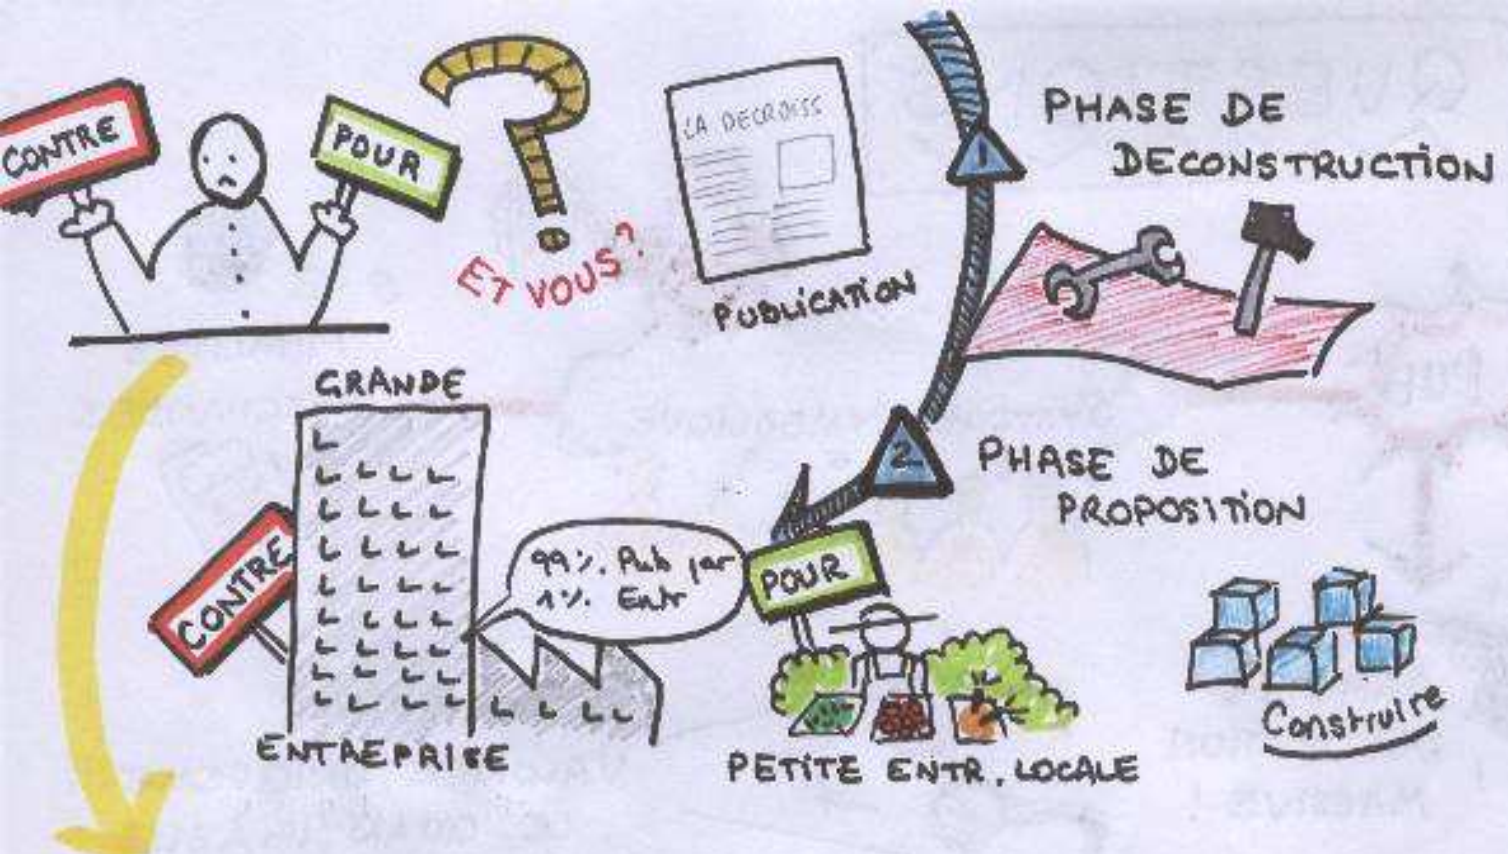 CONTRE
POUR
ET VOUS?
LA DECROISS
PUBLICATION
1
PHASE DE
DECONSTRUCTION
2
PHASE DE
PROPOSITION
GRANDE
CONTRE
ENTREPRISE
99%. Pub par
1% Entr
POUR
PETITE ENTR. LOCALE
Construire